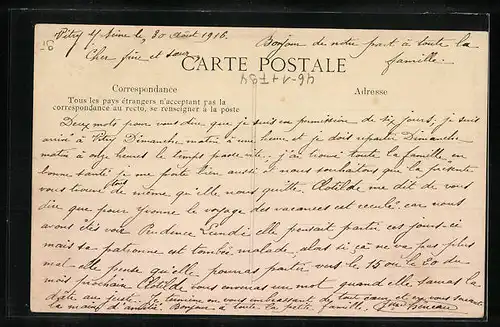 Vitry s/ Seine le, 30 Août 1916.
Cher frère et sœur,
Bonjour de notre part à toute la
famille.
CARTE POSTALE
Correspondance
Adresse
Tous les pays étrangers n'acceptant pas la
correspondance au recto, se renseigner à la poste
Deux mots pour vous dire que je suis en permission de dix jours, je suis
arrivé à Vitry Dimanche matin à une heure et je dois repartir Dimanche
matin à onze heures le temps passe vite. j'ai trouvé toute la famille en
bonne santé je me porte bien aussi nous souhaitons que la présente
vous trouve tout de même qu'elle nous quitte. Clotilde me dit de vous
dire que pour Yvonne le voyage des vacances est car nous
avons étés voir Prudence Lundi elle pensait partir ces jours-ci
mais sa patronne est tombée malade, alors si ça ne va pas plus
mal elle pense qu'elle pourras partir vers le 15 ou le 20 du
mois prochain Clotilde vous enverras un mot quand elle sauras la
date au juste. Je termine en vous embrassant de tout cœur et en vous serrant
la main d'amitié. Bonjour à toute la petite famille.